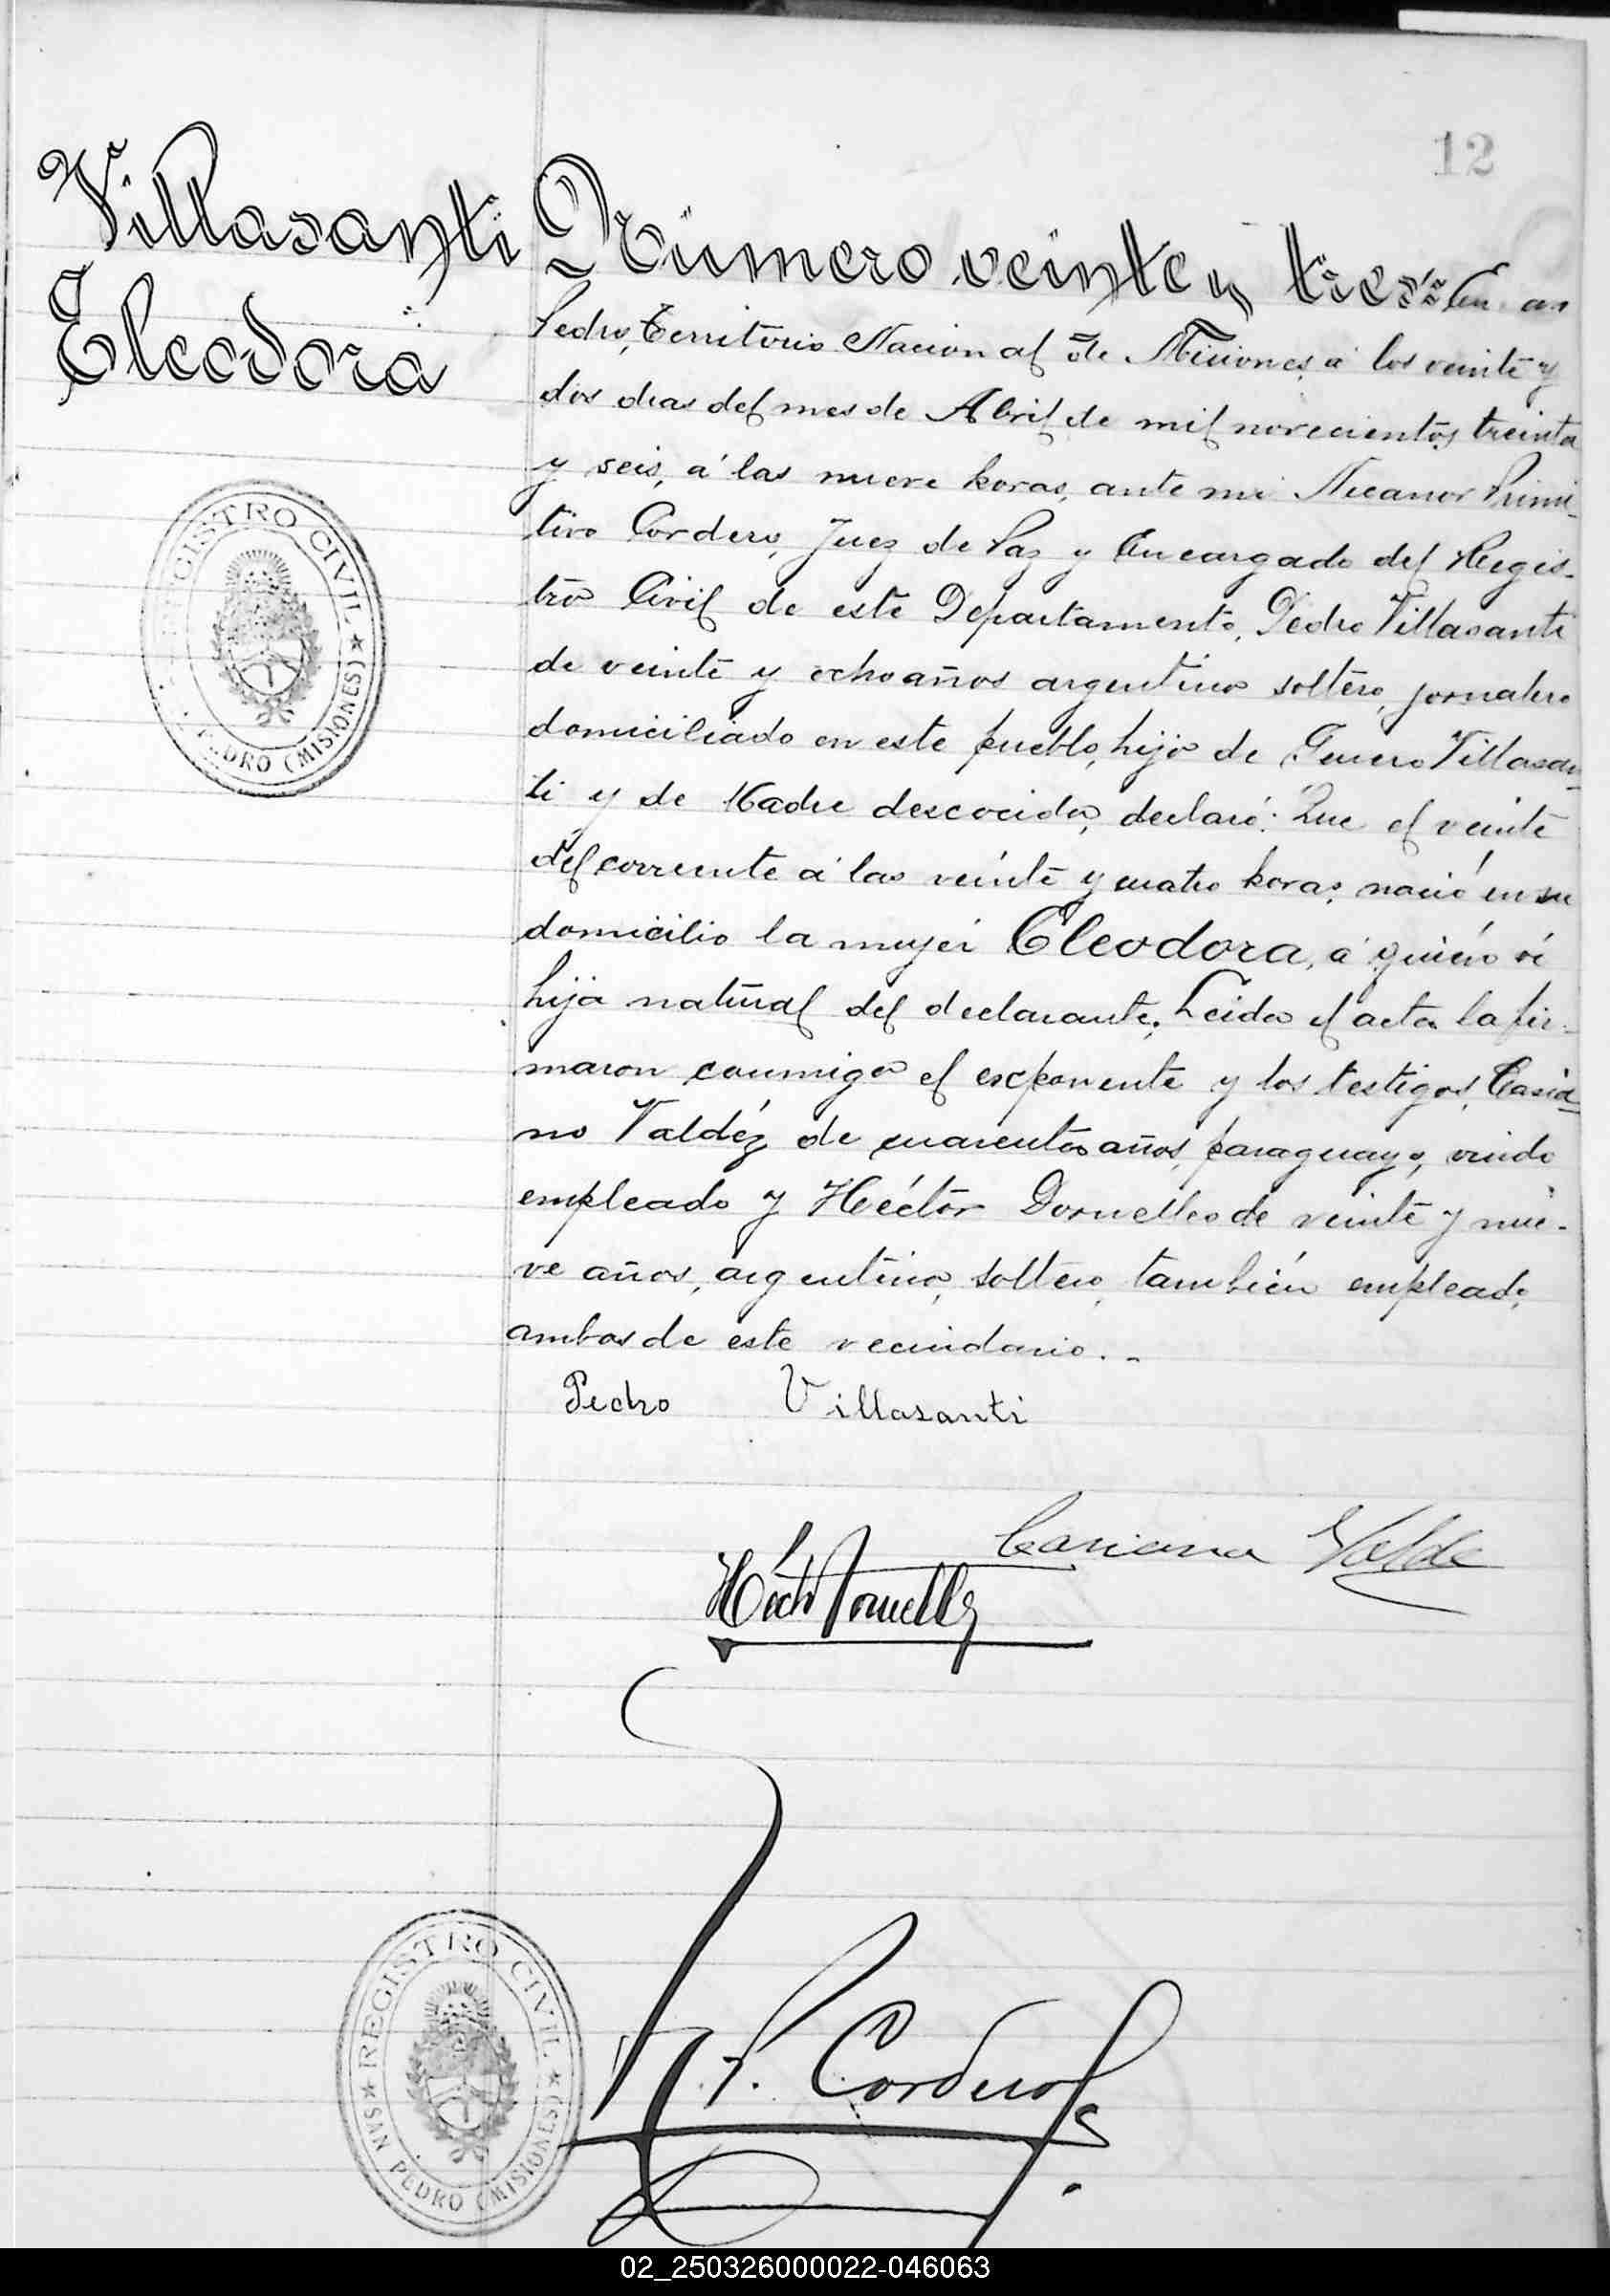 12
Villasanti
Eleodora
Número veinte y tres: En San
Pedro, Territorio Nacional de Misiones, á los veinte y
dos dias del mes de Abril de mil novecientos treinta
y seis, á las nueve horas, ante mi Nicanor Primi-
tivo Cordero, Juez de Paz y Encargado del Regis-
tro Civil de este Departamento, Pedro Villasanti
de veinte y ocho años argentino soltero, jornalero
domiciliado en este pueblo, hijo de Villasan-
ti y de Madre descocida, declaró: Que el veinte
del corriente á las veinte y cuatro horas, nació en su
domicilio la mujer Eleodora, á quién ví
hija natural del declarante. Leida el acta la fir-
maron conmigo el exponente y los testigos, Casia-
no Valdéz de cuarenta años, paraguayo, viudo
empleado y Héctor Dornelles de veinte y nue-
ve años, argentino, soltero, también empleado,
ambos de este vecindario. -
Pedro Villasanti
Casiano Valde
Héctor Dornelles
N. P. Cordero
REGISTRO CIVIL
PEDRO (MISIONES)
REGISTRO CIVIL
SAN PEDRO (MISIONES)
02_250326000022-046063